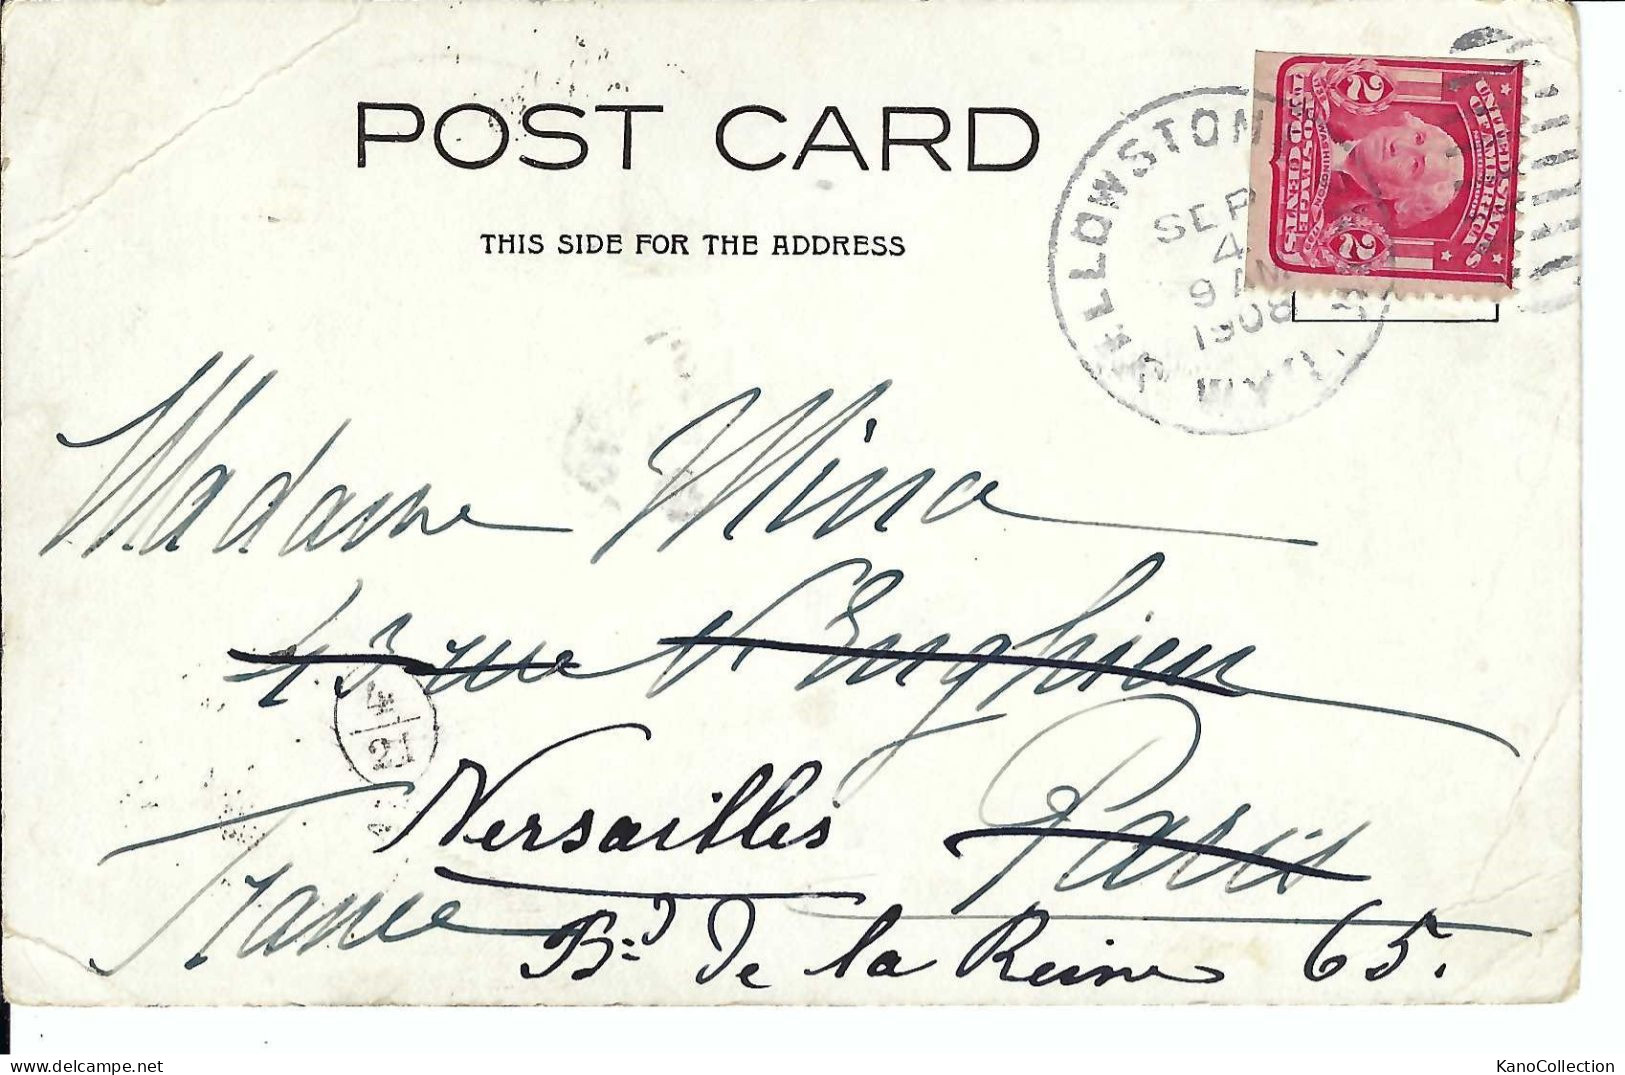 POST CARD
THIS SIDE FOR THE ADDRESS
YELLOWSTONE
SEP
4
9 AM
1908
WYO.
UNITED STATES
OF AMERICA
WASHINGTON
POSTAGE
TWO CENTS
2 2
Madame Mina
43 rue d'Enghien
4
21
Versailles Paris
France
Bd. de la Reine 65.
KanoCollection